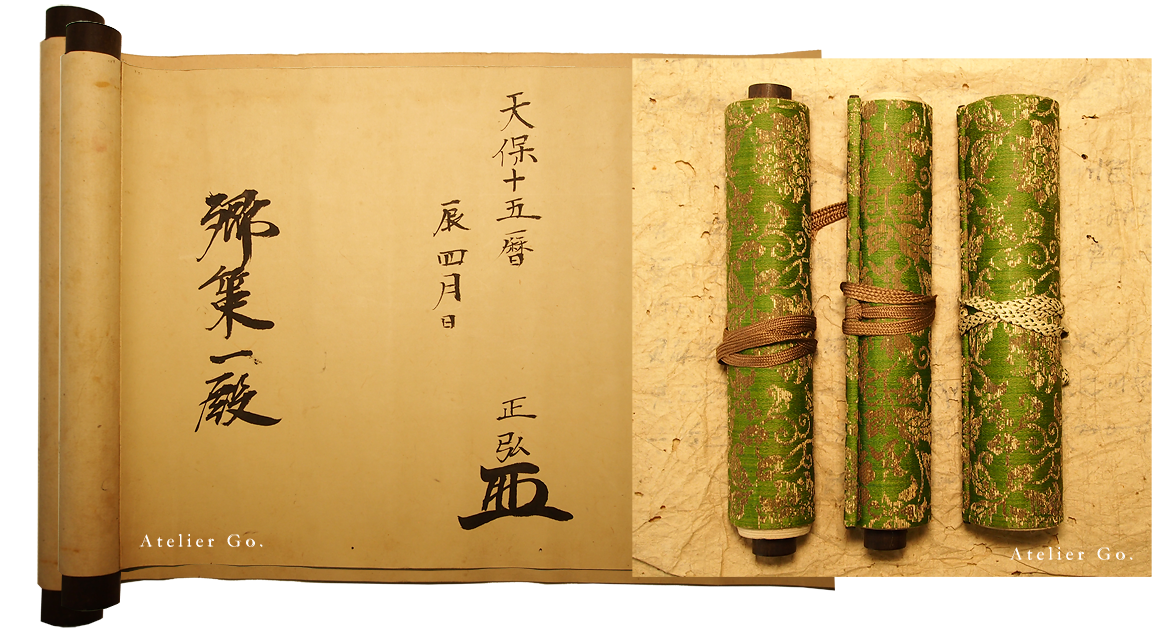 天保十五暦
辰四月日
正弘
郷策一殿
Atelier Go.
Atelier Go.